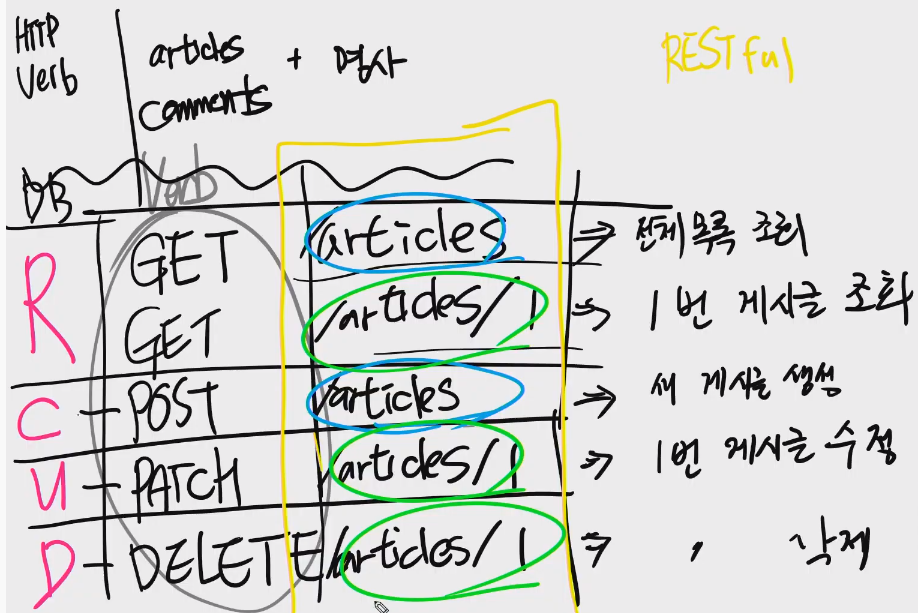 HTTP
Verb
articles + 명사
comments
RESTful
DB Verb
R GET /articles => 전체 목록 조회
GET /articles/1 => 1번 게시글 조회
C - POST /articles => 새 게시글 생성
U - PATCH /articles/1 => 1번 게시글 수정
D - DELETE /articles/1 => " 삭제